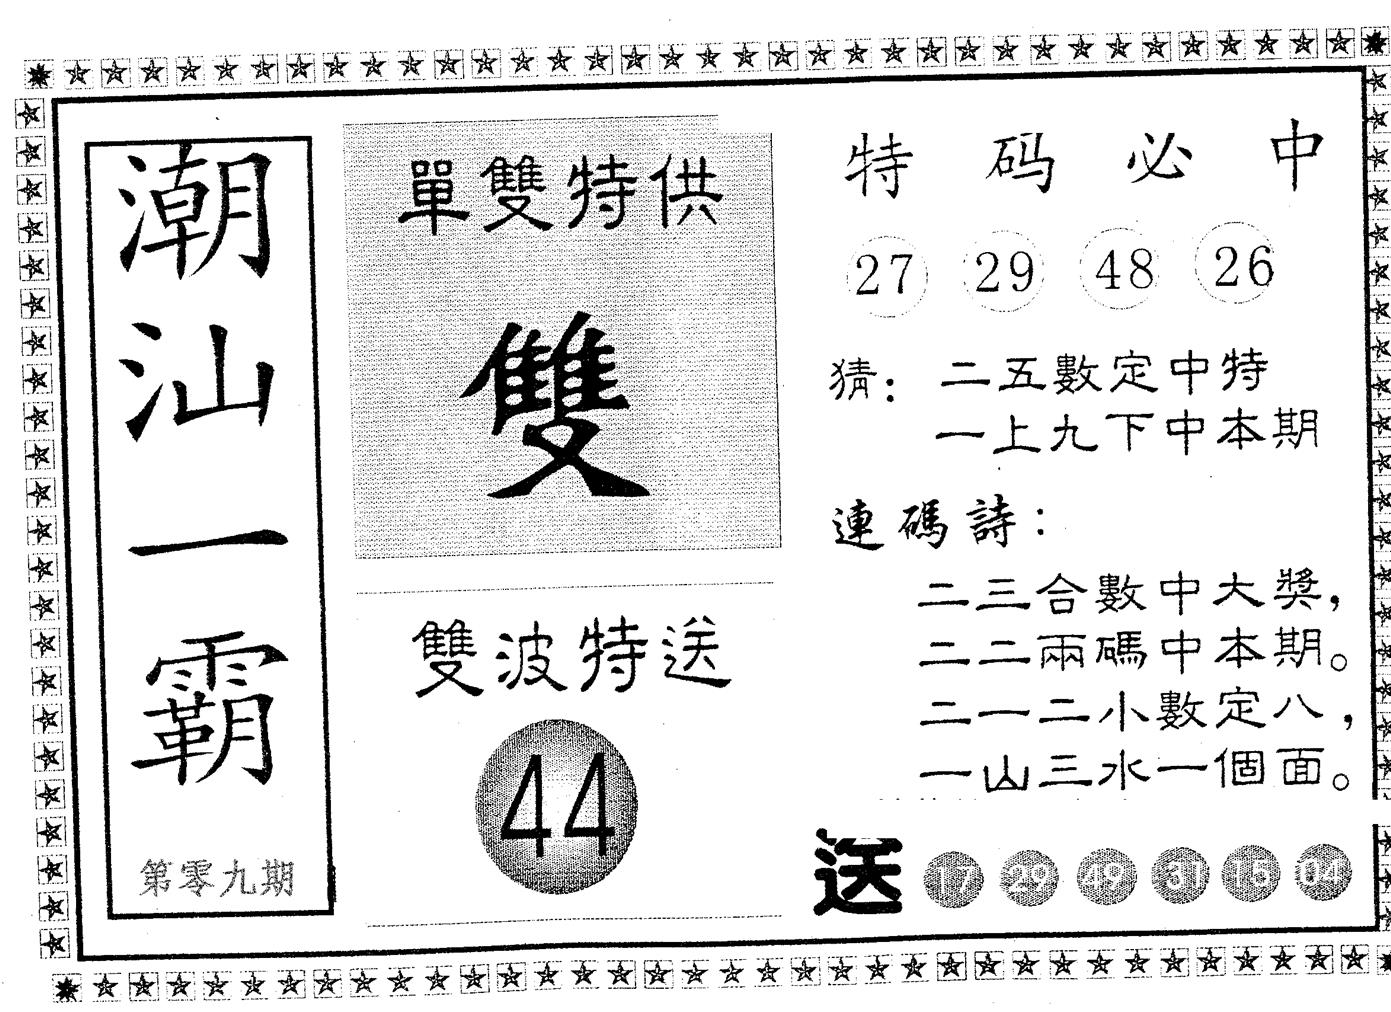 潮汕一霸
第零九期
單雙特供
雙
雙波特送
44
特码必中
27 29 48 26
猜：二五數定中特
一上九下中本期
連碼詩：
二三合數中大獎，
二二兩碼中本期。
二一二小數定八，
一山三水一個面。
送 17 29 49 31 15 04